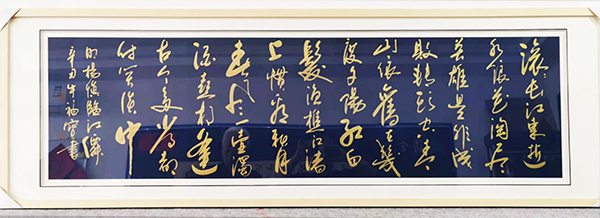 滚々长江东逝
水浪花淘尽
英雄是非成
败转头空青
山依旧在几
度夕阳红白
髮渔樵江渚
上惯看秋月
春风一壶浊
酒喜相逢
古今多少事都
付笑谈中
明楊慎臨江仙
辛丑牛福寶書